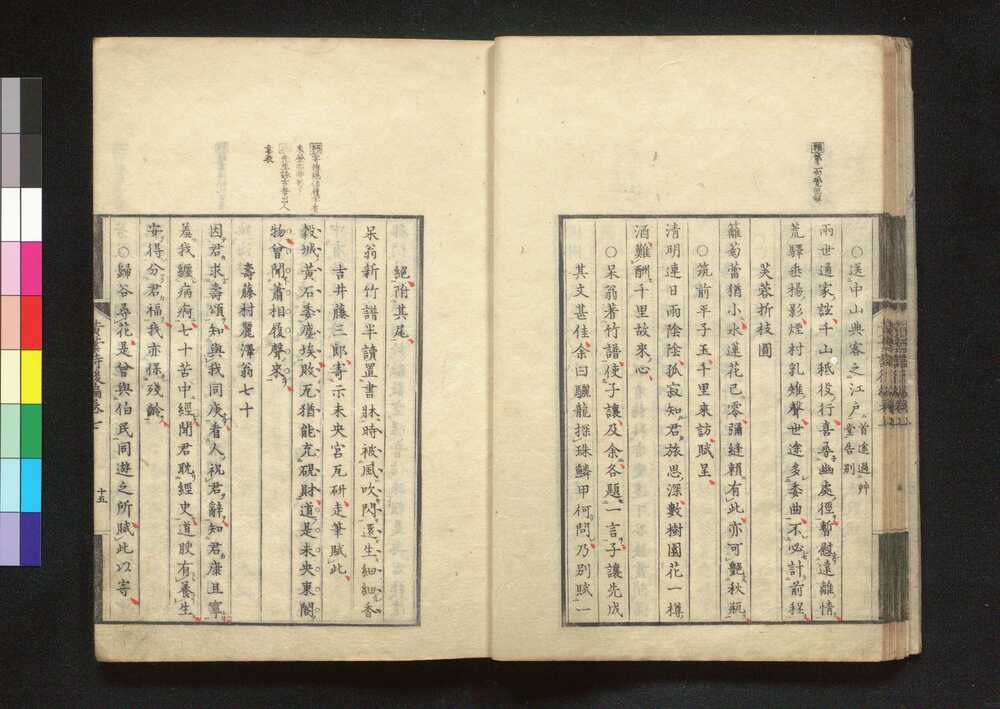 ○送中山典客之江戶 首途過艸堂告別
兩世通家誼千山秪役行喜尋幽處徑暫慰遠離情
荒驛垂楊影煙村乳雉聲世途多委曲不必計前程
芙蓉折枝圖
籬菊蕾猶小水蓮花已零彌縫賴有此亦可艷秋瓶
○筑前平子玉千里來訪賦呈
清明連日雨陰陰孤寂知君旅思深數樹園花一樽
酒難酬千里故來心
○呆翁著竹譜使子讓及余各題一言子讓先成
其文甚佳余曰驪龍探珠鱗甲何問乃別賦一
絕附其尾
呆翁新竹譜半讀置書牀時被風吹閃還生細細香
吉井藤三郎寄示未央宮瓦硏走筆賦此
穀城黃石委塵埃敗瓦猶能充硯財道是未央東閣
物曾聞蕭相履聲來
壽藤村麗澤翁七十
因君求壽頌知與我同庚看人祝君辭知君康且寧
羞我纏病痾七十苦中經聞君耽經史道腴有養生
安得分君福我亦保殘齡
○歸谷尋花是曾與伯民同遊之所賦此以寄
十五